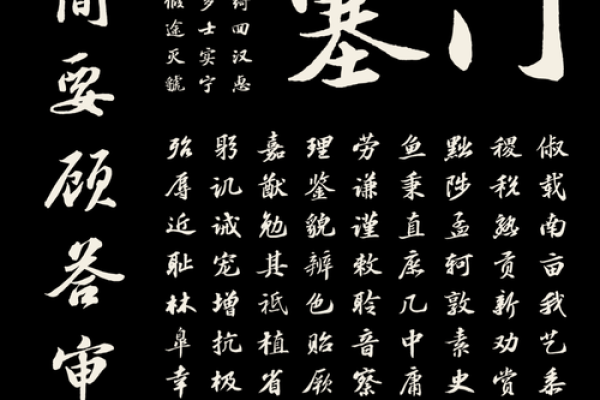 门
塞
绮回汉惠
多士实宁
假途灭虢
俶载南亩我艺黍
稷税熟贡新劝赏
黜陟孟轲敦素史
鱼秉直庶几中庸
劳谦谨敕聆音察
理鉴貌辨色贻厥
嘉猷勉其祗植省
躬讥诫宠增抗极
殆辱近耻林皋幸
简要顾答审